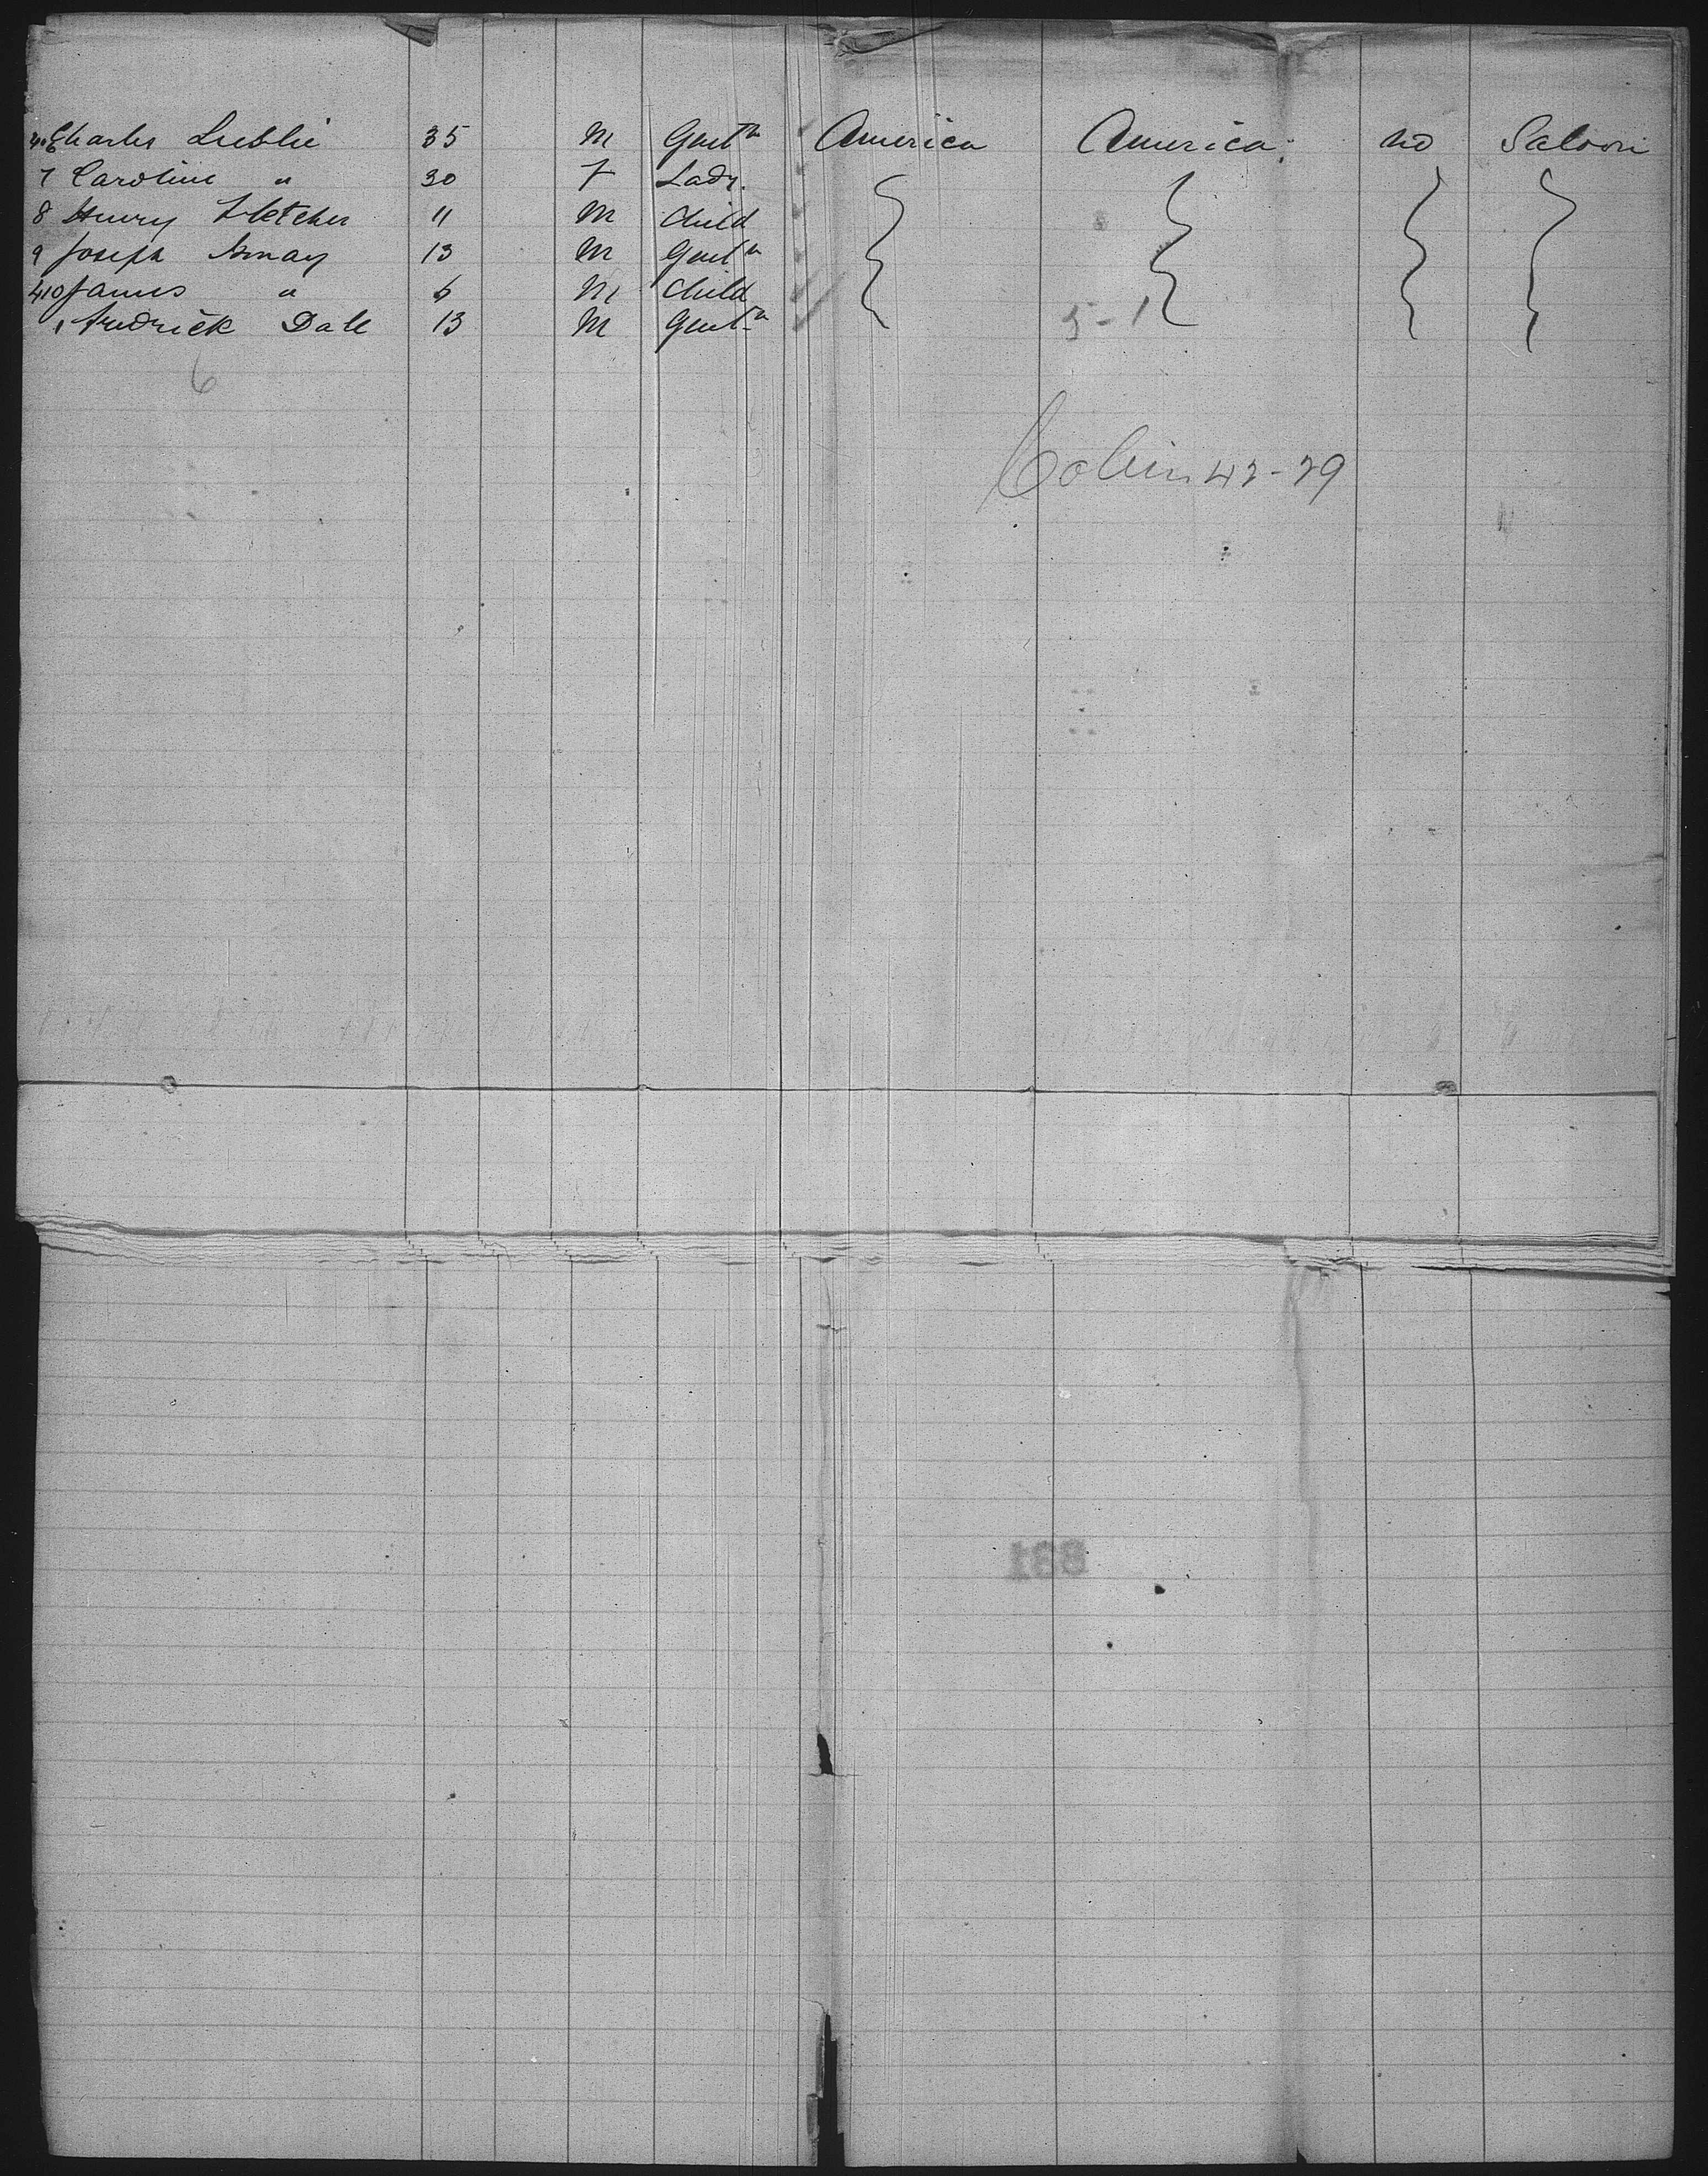 Charles Lublie 35 M Gentn America America no Saloon
7 Caroline " 30 F Lady
8 Henry Fletcher 11 M Child
9 Joseph 13 M Gentn
410 James " 6 M Child
1 Fredrick Dale 13 M Gentn
5-1
6
Cabin 42-29
881